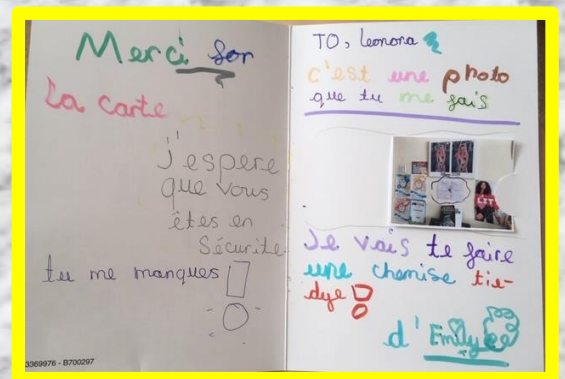 Merci for
La carte
J'espere
que vous
êtes en
Sécurité
tu me manques!
3369976 - B700297
TO, Leonora
c'est une photo
que tu me fais
Je vais te faire
une chemise tie-
dye!
d'Emily